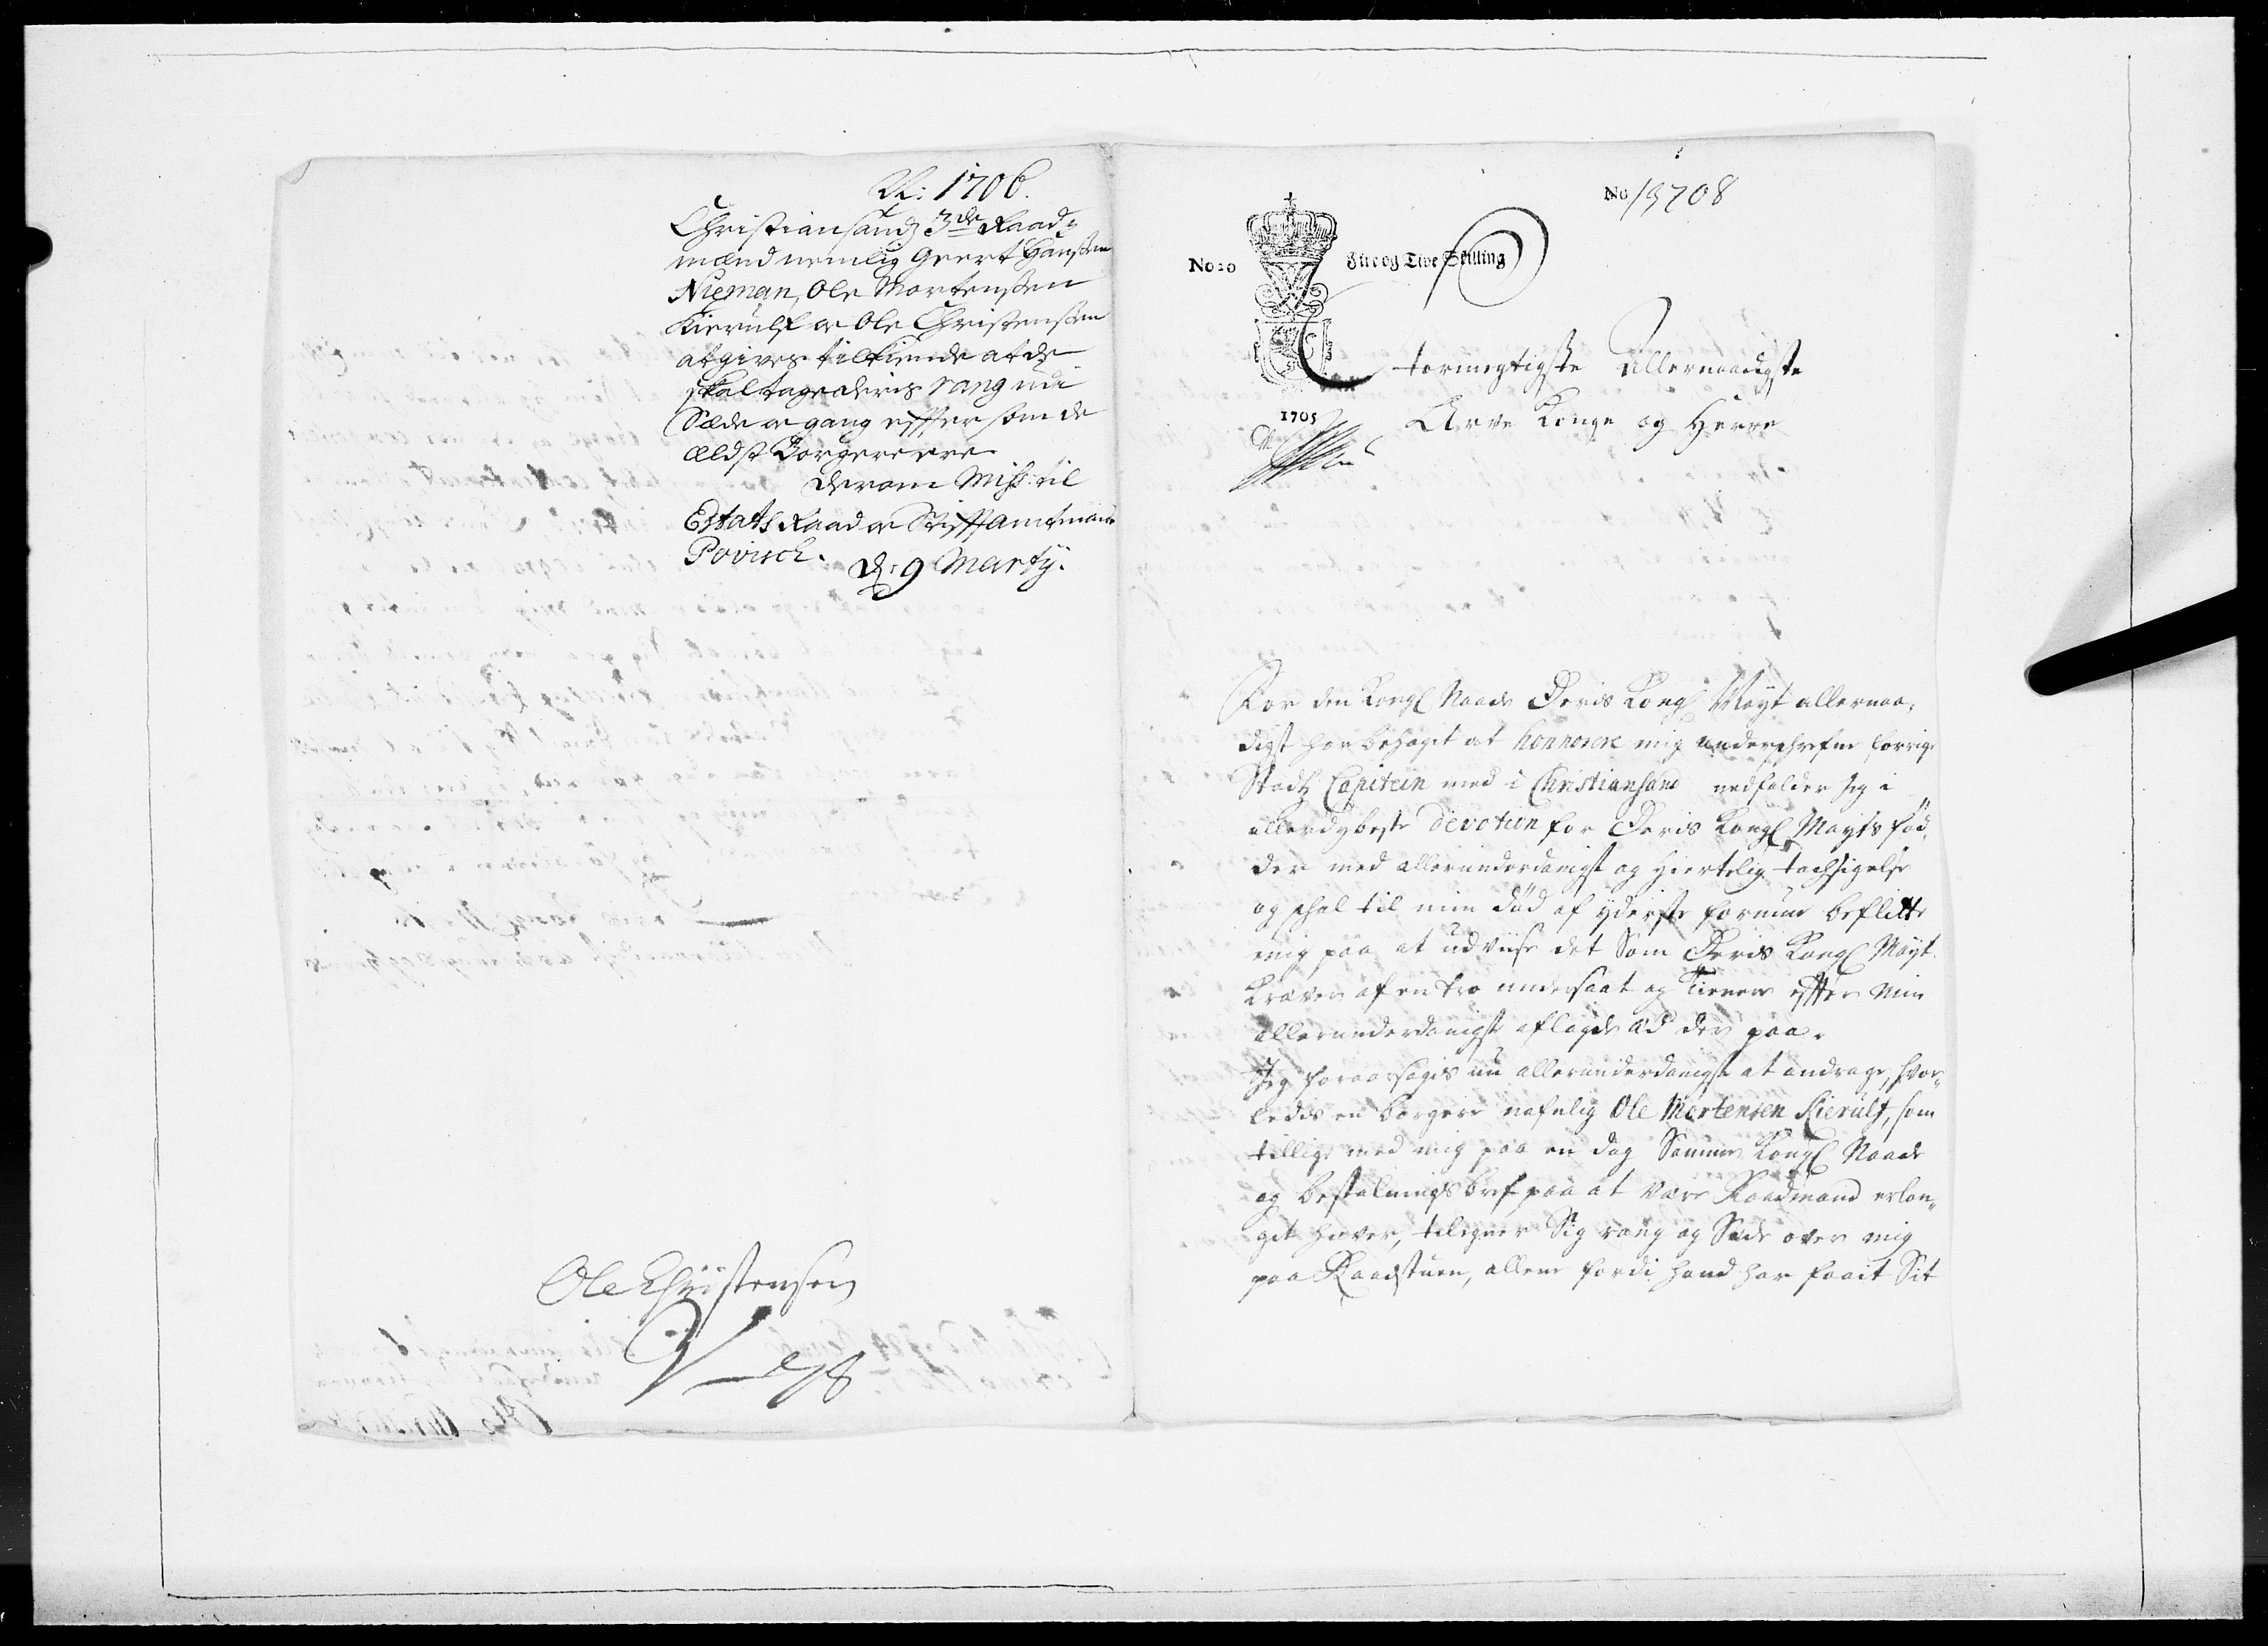 A: 1706.
Christiansandz 3de Raadz
mænd nemlig Geert Hanssen
Nieman, Ole Mortenssen
Kierulf og Ole Christenssen
at gives tilkiende at de
skal tage deris rang udi
Sæde og gang effter som de
ældst Borgere ere
derom Miss: til
Estats Raad og Stifftamtmand
Povisch.
d: 9 Martij.
Ole Christensen
No 13708
No 20
Fire og Tive Skilling
1705
Stormegtigste Allernaadigste
Arve Konge og Herre
For den Kongl Naade Deris Kongl Mayt allernaa,
digst har behaget at honnorere mig underschrefne forrige
Stadtz Capitein med i Christiansand nedfalder Jeg i
allerdybeste devotion for Deris Kongl Mayts fød,
der med allerunderdanigst og hiertelig tachsigelse
og schal til min død af yderste formue beflitte
mig paa at udviise det Som Deris Kongl Mayt.
Kræver af en tro undersaat og Tienere effter Min
allerunderdanigste aflagde æd der paa.
Jeg foraarsagis nu allerunderdanigst at andrage, hvor,,
ledis en borgere nafnlig Ole Mortensen Kierulf, som
tillige med mig paa en dag Samme Kongl Naade
og bestalnings bref paa at være Raadmand erlan,,
get hæver, tilegner Sig rang og Sæde over mig
paa Raadstuen, allene fordi hand har faait Sit